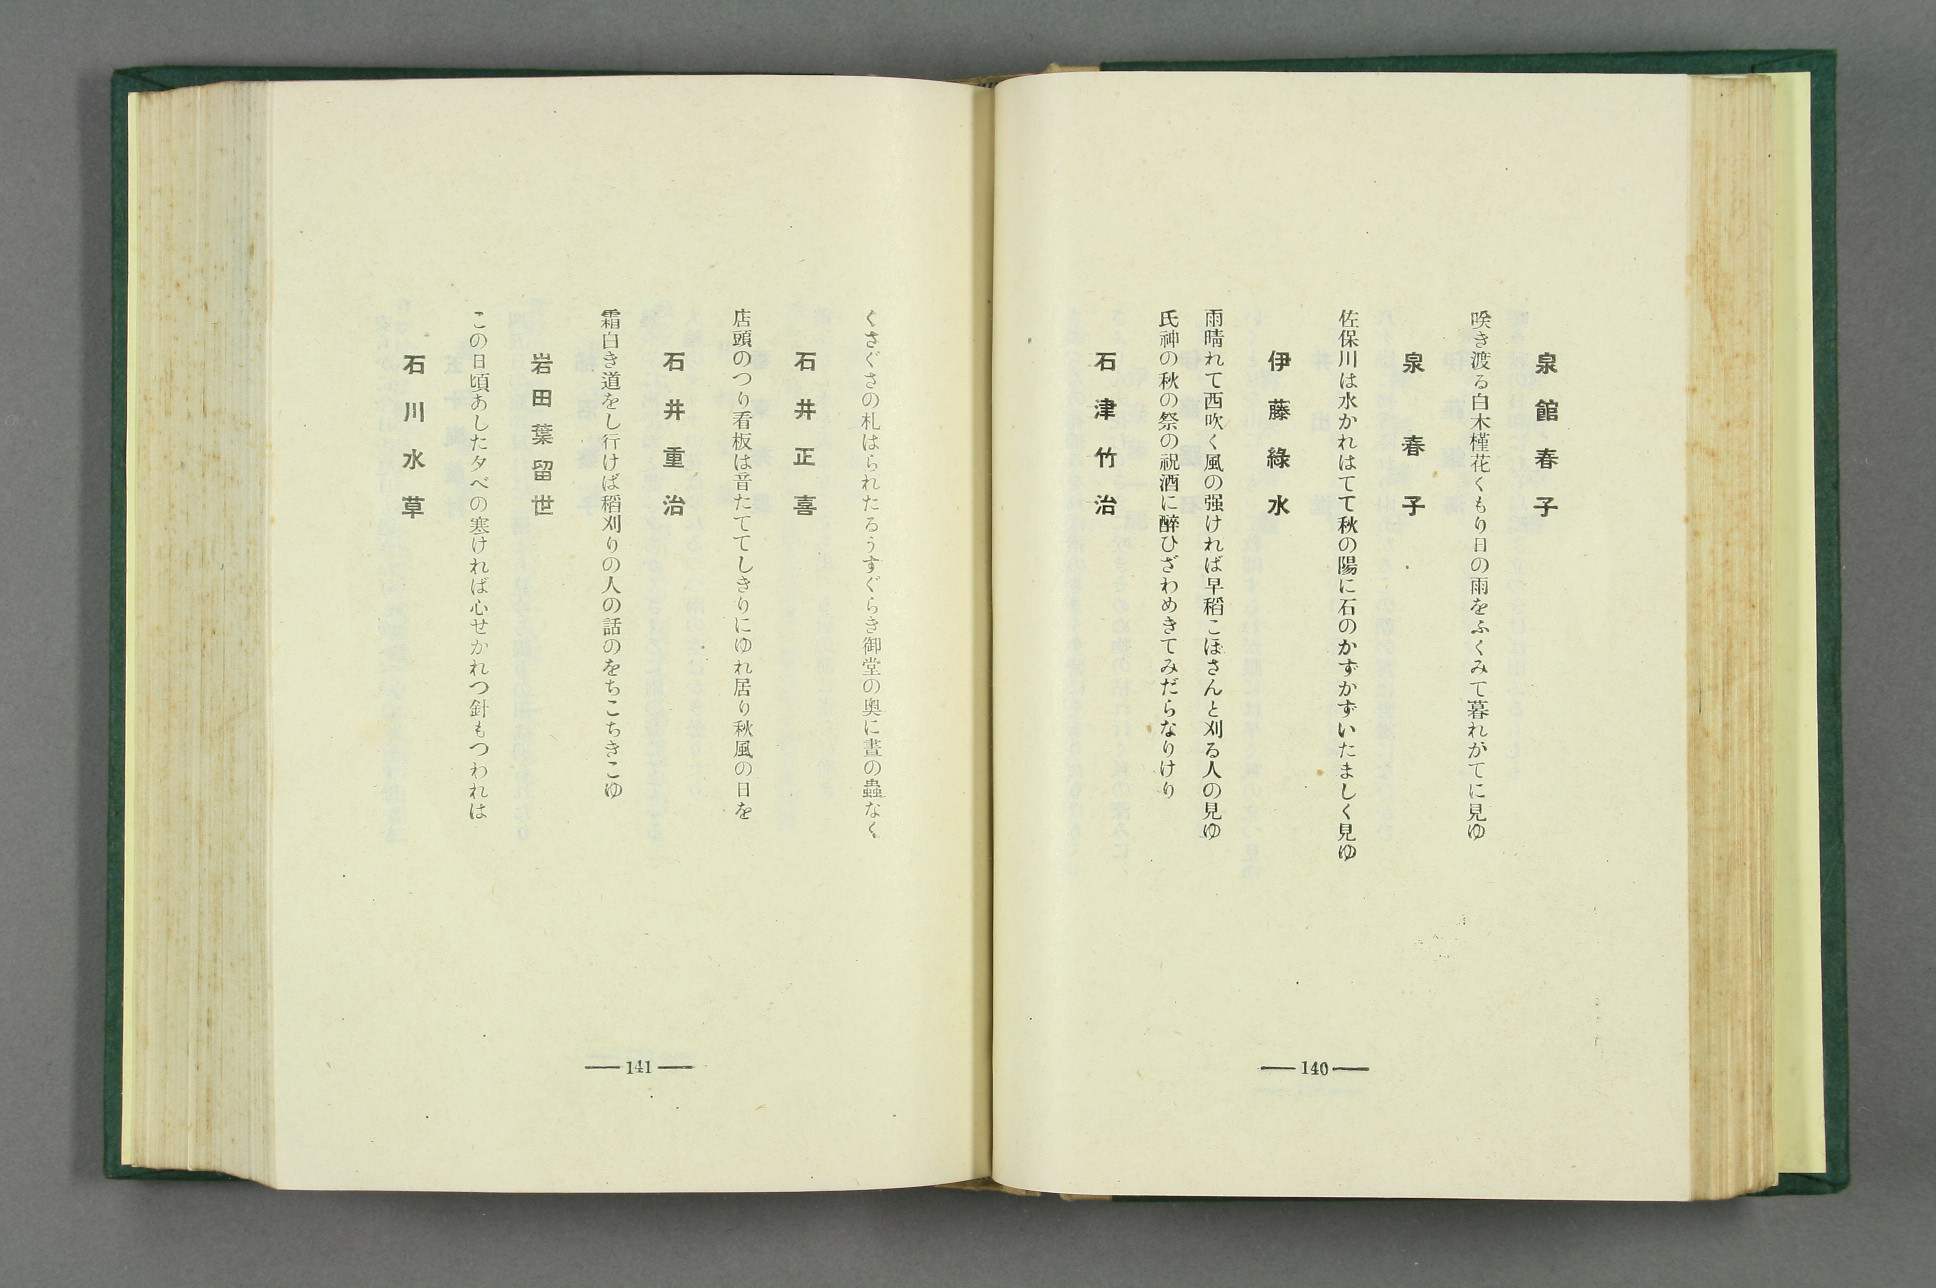 泉館春子
咲き渡る白木槿花くもり日の雨をふくみて暮れがてに見ゆ
泉春子
佐保川は水かれはてて秋の陽に石のかずかずいたましく見ゆ
伊藤綠水
雨晴れて西吹く風の强ければ早稻こぼさんと刈る人の見ゆ
氏神の秋の祭の祝酒に醉ひざわめきてみだらなりけり
石津竹治
140
くさぐさの札はられたるうすぐらき御堂の奧に晝の蟲なく
石井正喜
店頭のつり看板は音たててしきりにゆれ居り秋風の日を
石井重治
霜白き道をし行けば稻刈りの人の話のをちこちきこゆ
岩田葉留世
この日頃あした夕べの寒ければ心せかれつ針もつわれは
石川水草
141